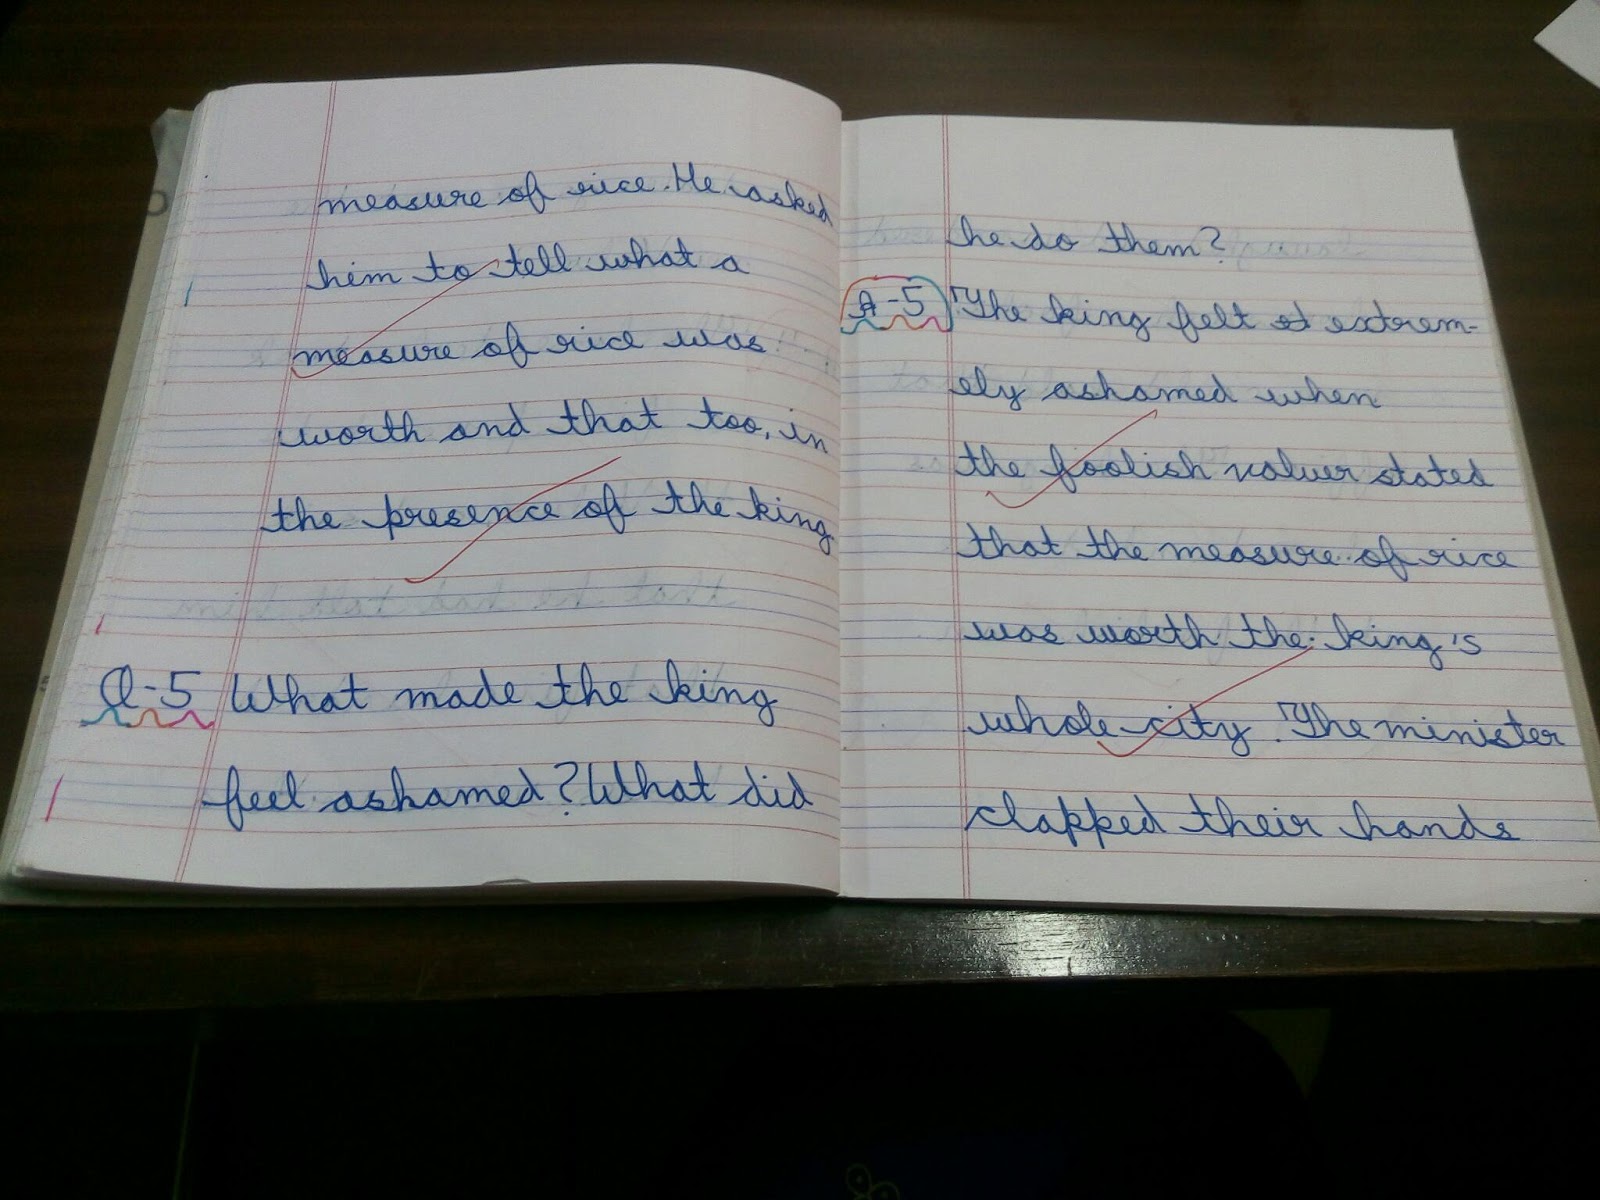 measure of rice. He asked
him to tell what a
measure of rice was
worth and that too, in
the presence of the king
Q-5 What made the king
feel ashamed? What did
he do them?
A-5 The king felt extrem-
ely ashamed when
the foolish valuer stated
that the measure of rice
was worth the king's
whole city. The minister
clapped their hands